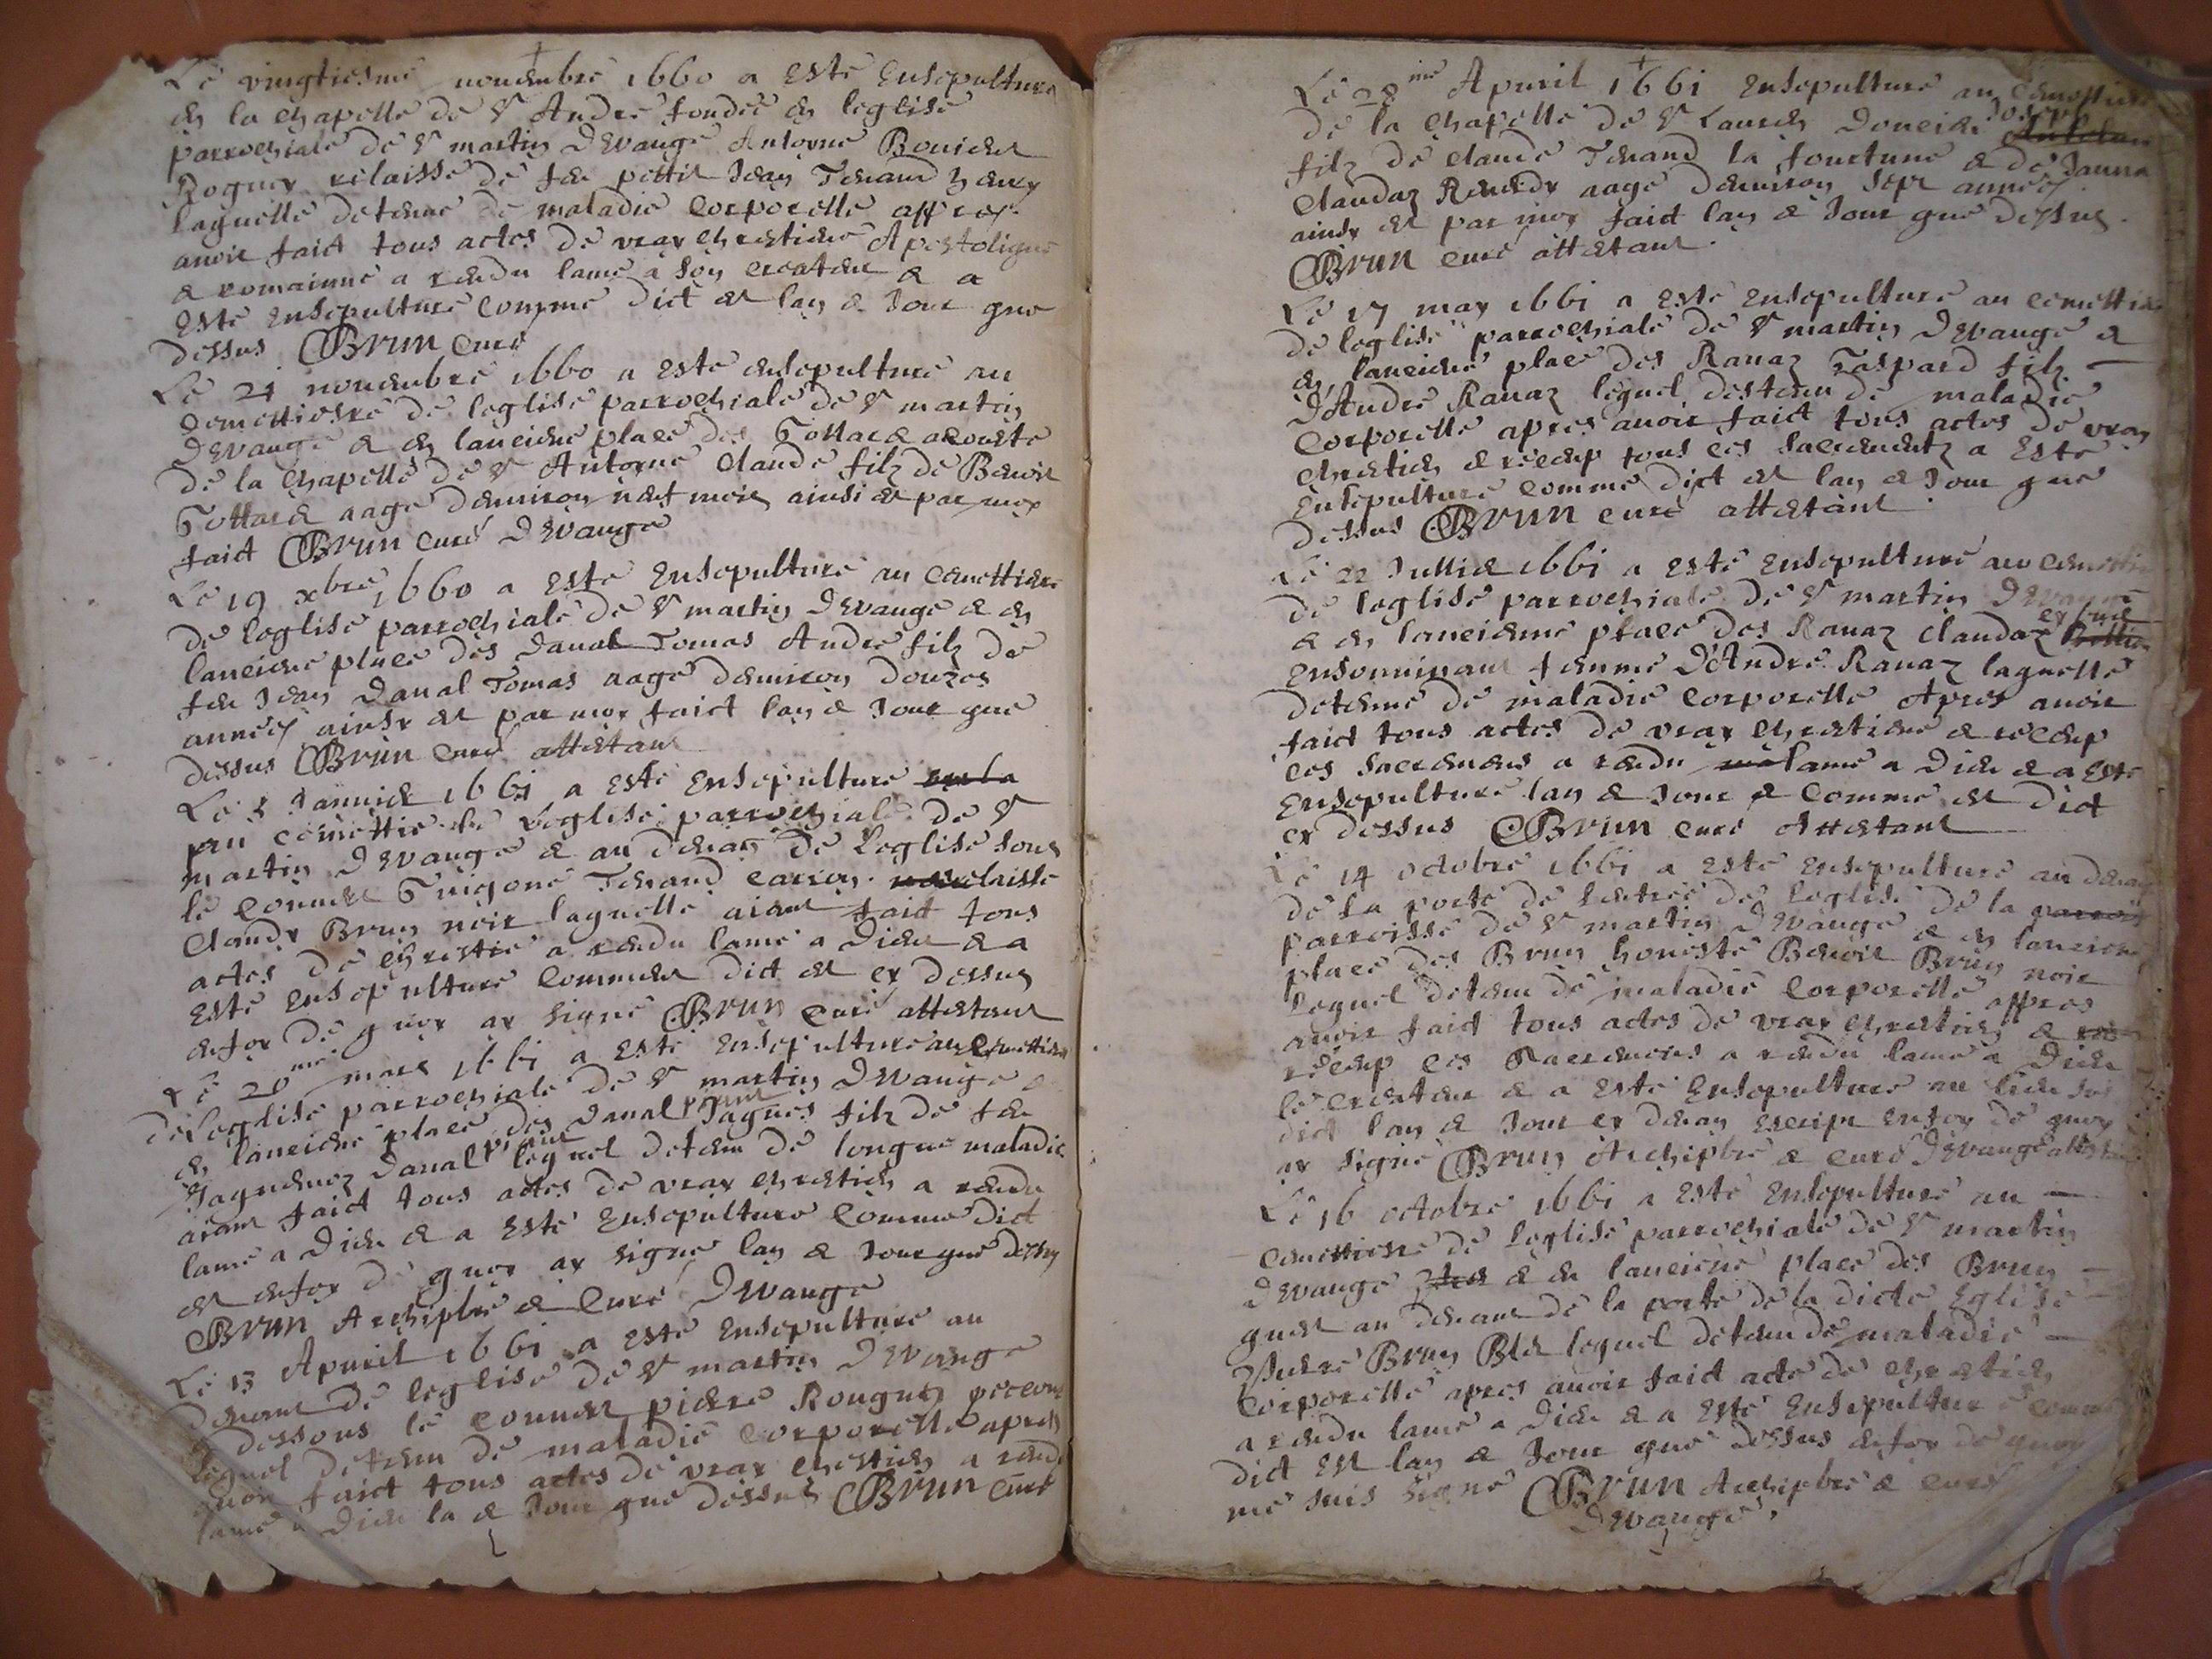 Le vingtiesme nouembre 1660 a este ensepulture
en la chapelle de St Andre fondee en leglise
parrochiale de St martin Devange Antoyne
relaisse de feu pettit Jean Tenand
laquelle detenue de maladie corporelle appres
auoir faict tous actes de vray chrestiene Apostolique
& romainne a rendu lame a son createur & a
este ensepulture comme dict est lan & Jour que
dessus Brun cure
Le 21 nouembre 1660 a este ensepulture au
cemettiesre de leglise parrochiale de St martin
Devange & en lanciene place des Gottard acoste
de la chapelle de St Antoyne Claude filz de Benoit
Gottard aage denuiron neuf mois ainsi est par moy
faict Brun cure Devange
Le 19 xbre 1660 a este ensepulture au cemettiere
de leglise parrochiale de St martin Devange & en
lanciene place des Danal Tomas Andre filz de
feu Jean Danal Tomas aage denuiron douzes
annees ainsy est par moy faict lan & Jour que
dessus Brun cure attestant
Le 8 Januier 1661 a este ensepulture en la
au cemettie de leglise parrochiale de St
martin Devange & au deuan de leglise sous
le couuert Guigone Tenand relaisse
Claudy Brun noir laquelle aiant faict tous
actes de chrestie a rendu lame a Dieu & a
este ensepulture comme dict est cy dessus
enfoy de quoy ay signe Brun cure attestant
Le 20me mars 1661 a este ensepulture au cemettiere
de leglise parrochiale de St martin Devange &
en lanciene place des Danal Jaques filz de feu
Danal lequel detenu de longue maladie
aiant faict tous actes de vray chrestien a rendu
lame a Dieu & a este ensepulture comme dict
est enfoy de quoy ay signe lan & Jour que dessus
Brun Archiptre & Cure Devange
Le 13 Apuril 1661 a este ensepulture au
deuant de leglise de St martin Devange
& dessous le couuert pierre
lequel detenu de maladie corporelle apres
auoir faict tous actes de vray chrestien a rendu
lame a Dieu la & Jour que dessus Brun Cure
Le 28me Apuril 1661 ensepulture au cemettiere
de la chapelle de St Laurens Joseph
filz de claude Tenand la fourtune & de Janna
Claudaz aage denuiron sept annees
ainsy est par moy faict lan & Jour que dessus
Brun cure attestant
Le 17 may 1661 a este ensepulture au cemettie
de leglise parrochiale de St martin Devange &
en lanciene place des Ranaz Gaspard filz
d'Andre Ranaz lequel destenu de maladie
corporelle apres auoir faict tous actes de vray
chrestien & receup tous ces sacrementz a este
ensepulture comme dict est lan & Jour que
dessus Brun cure attestant
Le 22 Jullie 1661 a este ensepulture au cemettie
de leglise parrochiale de St martin Devange
& en lanciene place des Ranaz Claudaz
femme d'Andre Ranaz laquelle
detenue de maladie corporelle Apres auoir
faict tous actes de vray chrestiene & receup
ces sacremens a rendu lame a Dieu & a este
ensepulture lan & Jour & comme est dict
cy dessus Brun cure Attestant
Le 14 octobre 1661 a este ensepulture au deuan
de la porte de lentree de leglise de la
parroisse de St martin Devange & en lanciene
place des Brun honeste Benoit Brun noir
lequel detenu de maladie corporelle appres
auoir faict tous actes de vray chrestien &
receup ces sacremens a rendu lame a Dieu
le createur & a este ensepulture au lieu sus
dict lan & Jour cy deuan escript enfoy de quoy
ay signe Brun Archiptre & cure Devange attestant
Le 16 octobre 1661 a este ensepulture au
cemettiesre de leglise parrochiale de St martin
Devange & en lanciene place des Brun
au deuant de la porte de la dicte Eglise
Pierre Brun lequel detenu de maladie
corporelle apres auoir faict acte de chrestien
a rendu lame a Dieu & a este ensepulture comme
dict est lan & Jour que dessus enfoy de quoy
me suis signe Brun Archiptre & cure
Devange